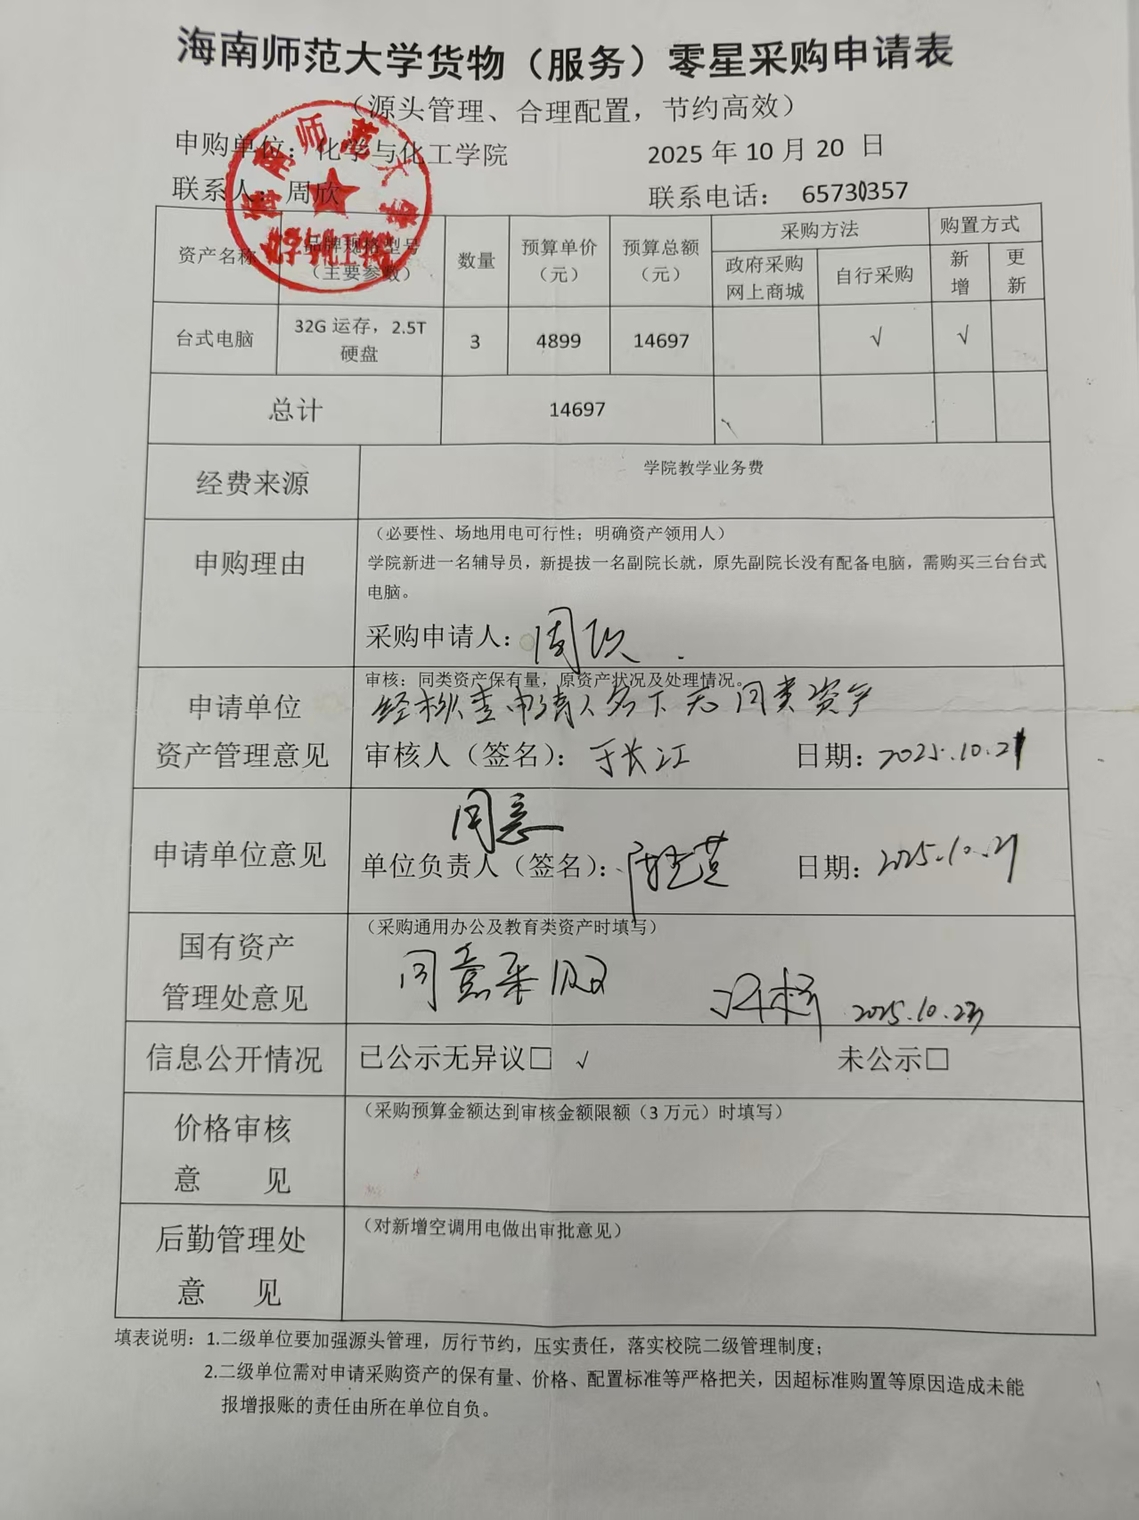 海南师范大学货物（服务）零星采购申请表
（源头管理、合理配置，节约高效）
申购单位：化学与化工学院 2025 年 10 月 20 日
联系人：周欣 联系电话： 65730357
海南师范大学
化学与化工学院
资产名称 品牌规格型号（主要参数） 数量 预算单价（元） 预算总额（元） 采购方法 购置方式
政府采购网上商城 自行采购 新增 更新
台式电脑 32G 运存，2.5T 硬盘 3 4899 14697 √ √
总计 14697
经费来源 学院教学业务费
申购理由 （必要性、场地用电可行性；明确资产领用人）
学院新进一名辅导员，新提拔一名副院长就，原先副院长没有配备电脑，需购买三台台式
电脑。
采购申请人：周欣
申请单位资产管理意见 审核：同类资产保有量，原资产状况及处理情况。
经核查申请人名下无同类资产
审核人（签名）：于长江 日期：2025.10.21
申请单位意见 同意
单位负责人（签名）： 日期：2025.10.21
国有资产管理处意见 （采购通用办公及教育类资产时填写）
同意采购 2025.10.23
信息公开情况 已公示无异议□ √ 未公示□
价格审核意 见 （采购预算金额达到审核金额限额（3 万元）时填写）
后勤管理处意 见 （对新增空调用电做出审批意见）
填表说明：1.二级单位要加强源头管理，厉行节约，压实责任，落实校院二级管理制度；
2.二级单位需对申请采购资产的保有量、价格、配置标准等严格把关，因超标准购置等原因造成未能
报增报账的责任由所在单位自负。